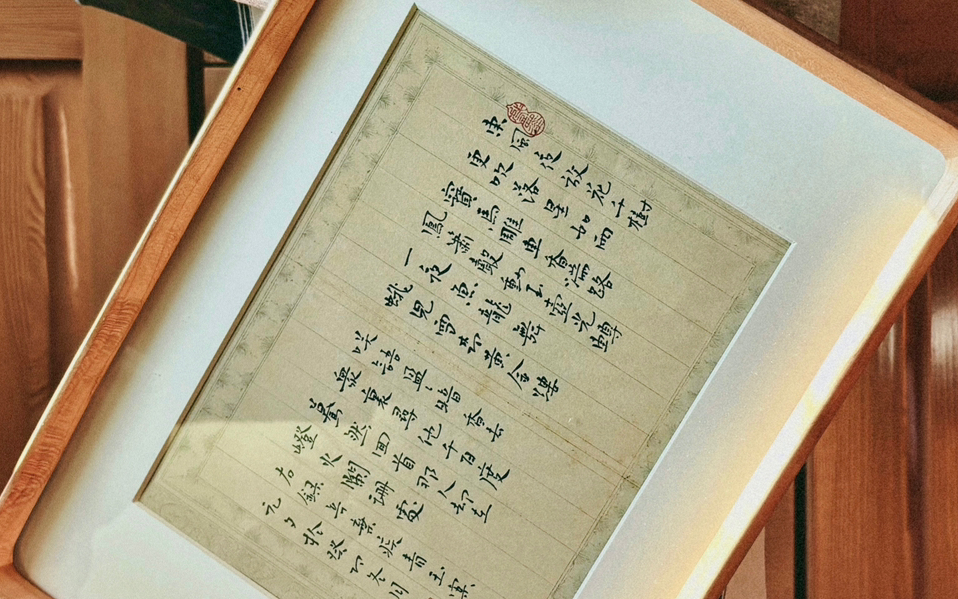 東風夜放花千樹
更吹落星如雨
寶馬雕車香滿路
鳳簫聲動玉壺光轉
一夜魚龍舞
蛾兒雪柳黃金縷
笑語盈盈暗香去
眾裏尋他千百度
驀然回首那人卻在
燈火闌珊處
右錄辛棄疾青玉案
元夕於癸卯冬月